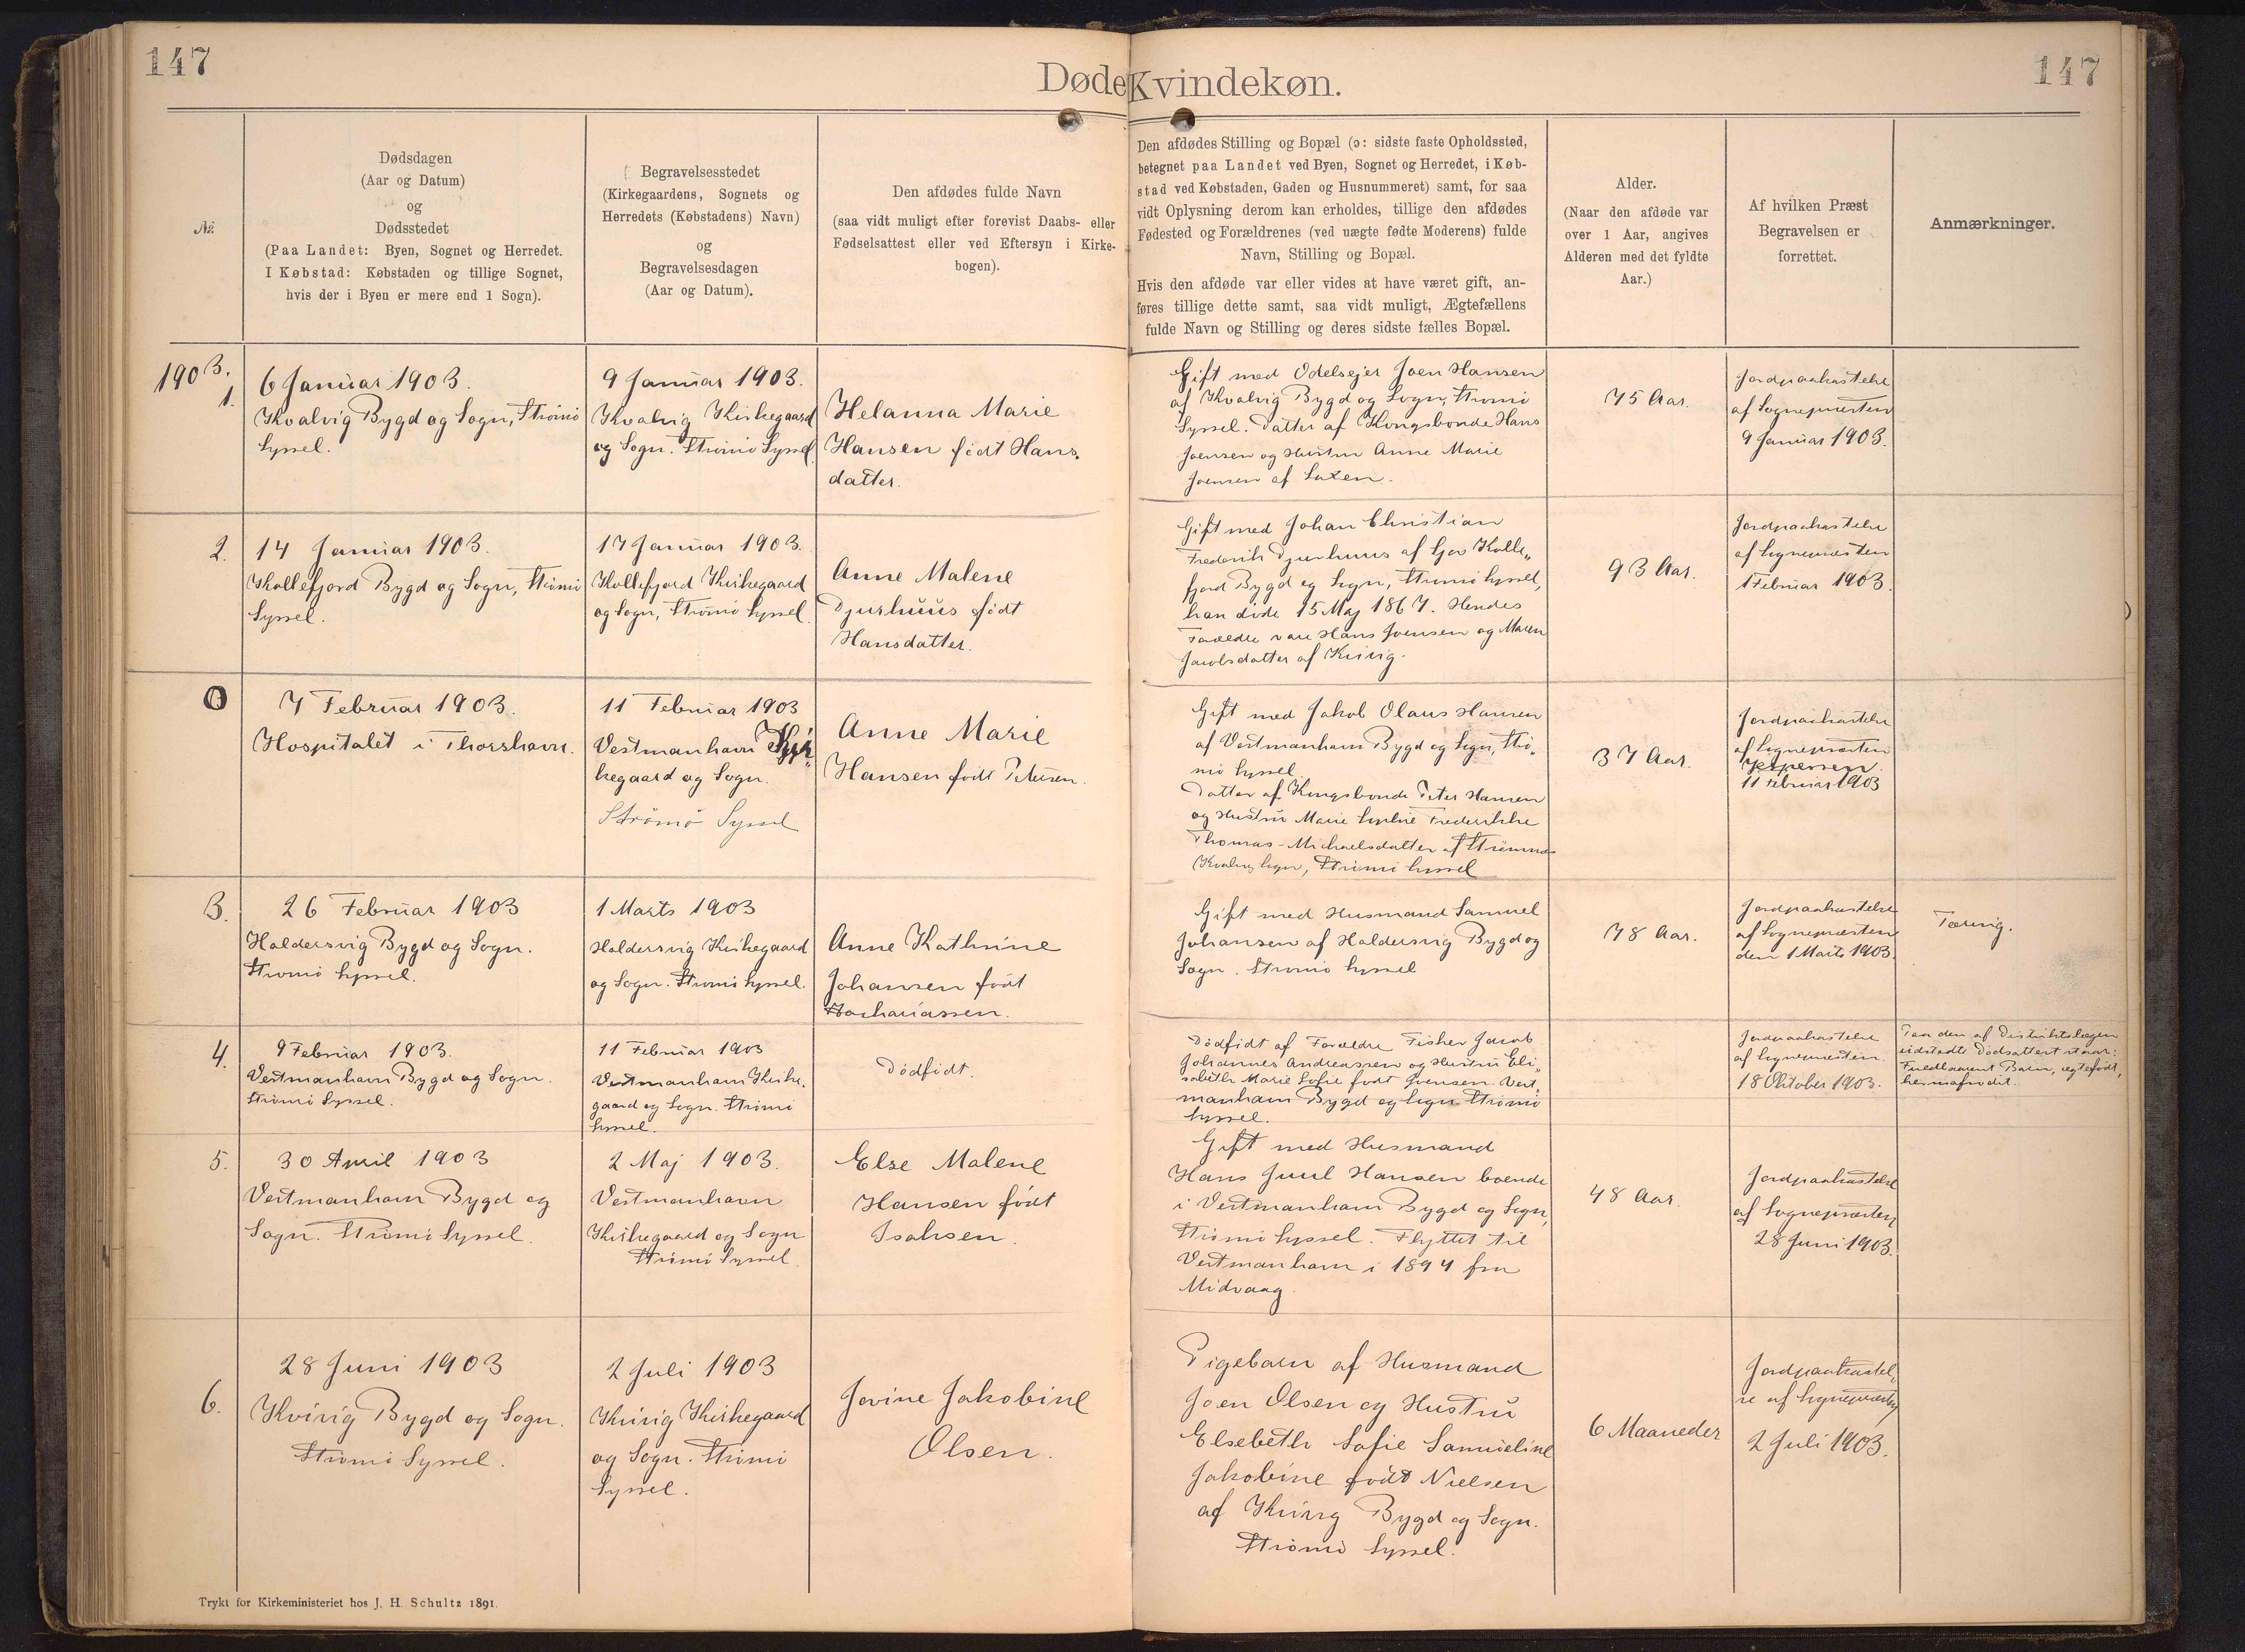 147
147
Døde Kvindekøn.
№
Dødsdagen
(Aar og Datum)
og
Dødsstedet
(Paa Landet: Byen, Sognet og Herredet.
I Købstad: Købstaden og tillige Sognet,
hvis der i Byen er mere end 1 Sogn).
Begravelsesstedet
(Kirkegaardens, Sognets og
Herredets (Købstadens) Navn)
og
Begravelsesdagen
(Aar og Datum).
Den afdødes fulde Navn
(saa vidt muligt efter forevist Daabs- eller
Fødselsattest eller ved Eftersyn i Kirke-
bogen).
Den afdødes Stilling og Bopæl (ɔ: sidste faste Opholdssted,
betegnet paa Landet ved Byen, Sognet og Herredet, i Køb-
stad ved Købstaden, Gaden og Husnummeret) samt, for saa
vidt Oplysning derom kan erholdes, tillige den afdødes
Fødested og Forældrenes (ved uægte fødte Moderens) fulde
Navn, Stilling og Bopæl.
Hvis den afdøde var eller vides at have været gift, an-
føres tillige dette samt, saa vidt muligt, Ægtefællens
fulde Navn og Stilling og deres sidste fælles Bopæl.
Alder.
(Naar den afdøde var
over 1 Aar, angives
Alderen med det fyldte
Aar.)
Af hvilken Præst
Begravelsen er
forrettet.
Anmærkninger.
1903.
1.
6 Januar 1903.
Kvalvig Bygd og Sogn, Strømø
Syssel.
9 Januar 1903.
Kvalvig Kirkegaard
og Sogn. Strømø Syssel
Helanna Marie
Hansen født Hans-
datter.
Gift med Odelsejer Joen Hansen
af Kvalvig Bygd og Sogn, Strømø
Syssel. Datter af Kongsbonde Hans
Joensen og Hustru Anne Marie
Joensen af Saxen.
75 Aar.
Jordpaakastelse
af Sognepræsten
9 Januar 1903.
2.
14 Januar 1903.
Kollefjord Bygd og Sogn, Strømø
Syssel.
17 Januar 1903.
Kollefjord Kirkegaard
og Sogn, Strømø Syssel.
Anne Malene
Djurhuus født
Hansdatter.
Gift med Johan Christian
Frederik Djurhuus af Kolle„
fjord Bygd og Sogn, Strømø Syssel,
han døde 15 Maj 1867. Hendes
Forældre vare Hans Joensen og Maren
Jacobsdatter af Kvivig.
93 Aar.
Jordpaakastelse
af Sognepræsten
1 Februar 1903.
0
7 Februar 1903.
Hospitalet i Thorshavn.
11 Februar 1903
Vestmanhavn Kir„
kegaard og Sogn.
Strømø Syssel
Anne Marie
Hansen født Petersen.
Gift med Jakob Olaus Hansen
af Vestmanhavn Bygd og Sogn, Strø„
mø Syssel.
Datter af Kongsbonde Peter Hansen
og Hustru Marie Sophie Frederikke
Thomas-Michaelsdatter af Strømnæs
Kvalvig Sogn, Strømø Syssel
37 Aar.
Jordpaakastelse
af Sognepræsten
Jespersen.
11 Februar 1903
3.
26 Februar 1903
Haldersvig Bygd og Sogn.
Strømø Syssel.
1 Marts 1903
Haldersvig Kirkegaard
og Sogn. Strømø Syssel.
Anne Kathrine
Johansen født
Zachariassen.
Gift med Husmand Samuel
Johansen af Haldersvig Bygd og
Sogn. Strømø Syssel
78 Aar.
Jordpaakastelse
af Sognepræsten
den 1 Marts 1903.
Tæring.
4.
9 Februar 1903.
Vestmanhavn Bygd og Sogn.
Strømø Syssel.
11 Februar 1903
Vestmanhavn Kirke„
gaard og Sogn. Strømø
Syssel.
Dødfødt.
Dødfødt af Forældre Fisker Jacob
Johannes Andreassen og Hustru Eli„
sabeth Marie Sofie født Joensen. Vest„
manhavn Bygd og Sogn Strømø
Syssel.
Jordpaakastelse
af Sognepræsten.
18 Oktober 1903.
Paa den af Distriktslægen
udstedte Dødsattest staar:
Fuldbaaret Barn, ægtefødt,
hermafrodit.
5.
30 April 1903
Vestmanhavn Bygd og
Sogn. Strømø Syssel.
2 Maj 1903.
Vestmanhavn
Kirkegaard og Sogn
Strømø Syssel.
Else Malene
Hansen født
Isaksen.
Gift med Husmand
Hans Juul Hansen boende
i Vestmanhavn Bygd og Sogn,
Strømø Syssel. Flyttet til
Vestmanhavn i 1894 fra
Midvaag.
48 Aar.
Jordpaakastelse
af Sognepræsten
28 Juni 1903.
6.
28 Juni 1903
Kvivig Bygd og Sogn.
Strømø Syssel.
2 Juli 1903
Kvivig Kirkegaard
og Sogn. Strømø
Syssel.
Jovine Jakobine
Olsen.
Pigebarn af Husmand
Joen Olsen og Hustru
Elsebeth Sofie Samueline
Jakobine født Nielsen
af Kvivig Bygd og Sogn.
Strømø Syssel.
6 Maaneder
Jordpaakastel„
se af Sognepræsten
2 Juli 1903.
Trykt for Kirkeministeriet hos J. H. Schultz 1891.